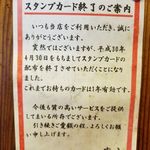 スタンプカード終了のご案内
いつも当店をご利用いただき、誠に
ありがとうございます。
突然ではございますが、平成30年
4月30日をもちましてスタンプカードの
配布を終了させていただくことになり
ました。
これまでお持ちのカードは1年有効です。
今後も質の高いサービスをご提供
してまいる所存でございます。
引き続きご愛顧の程、よろしくお願
い申し上げます。